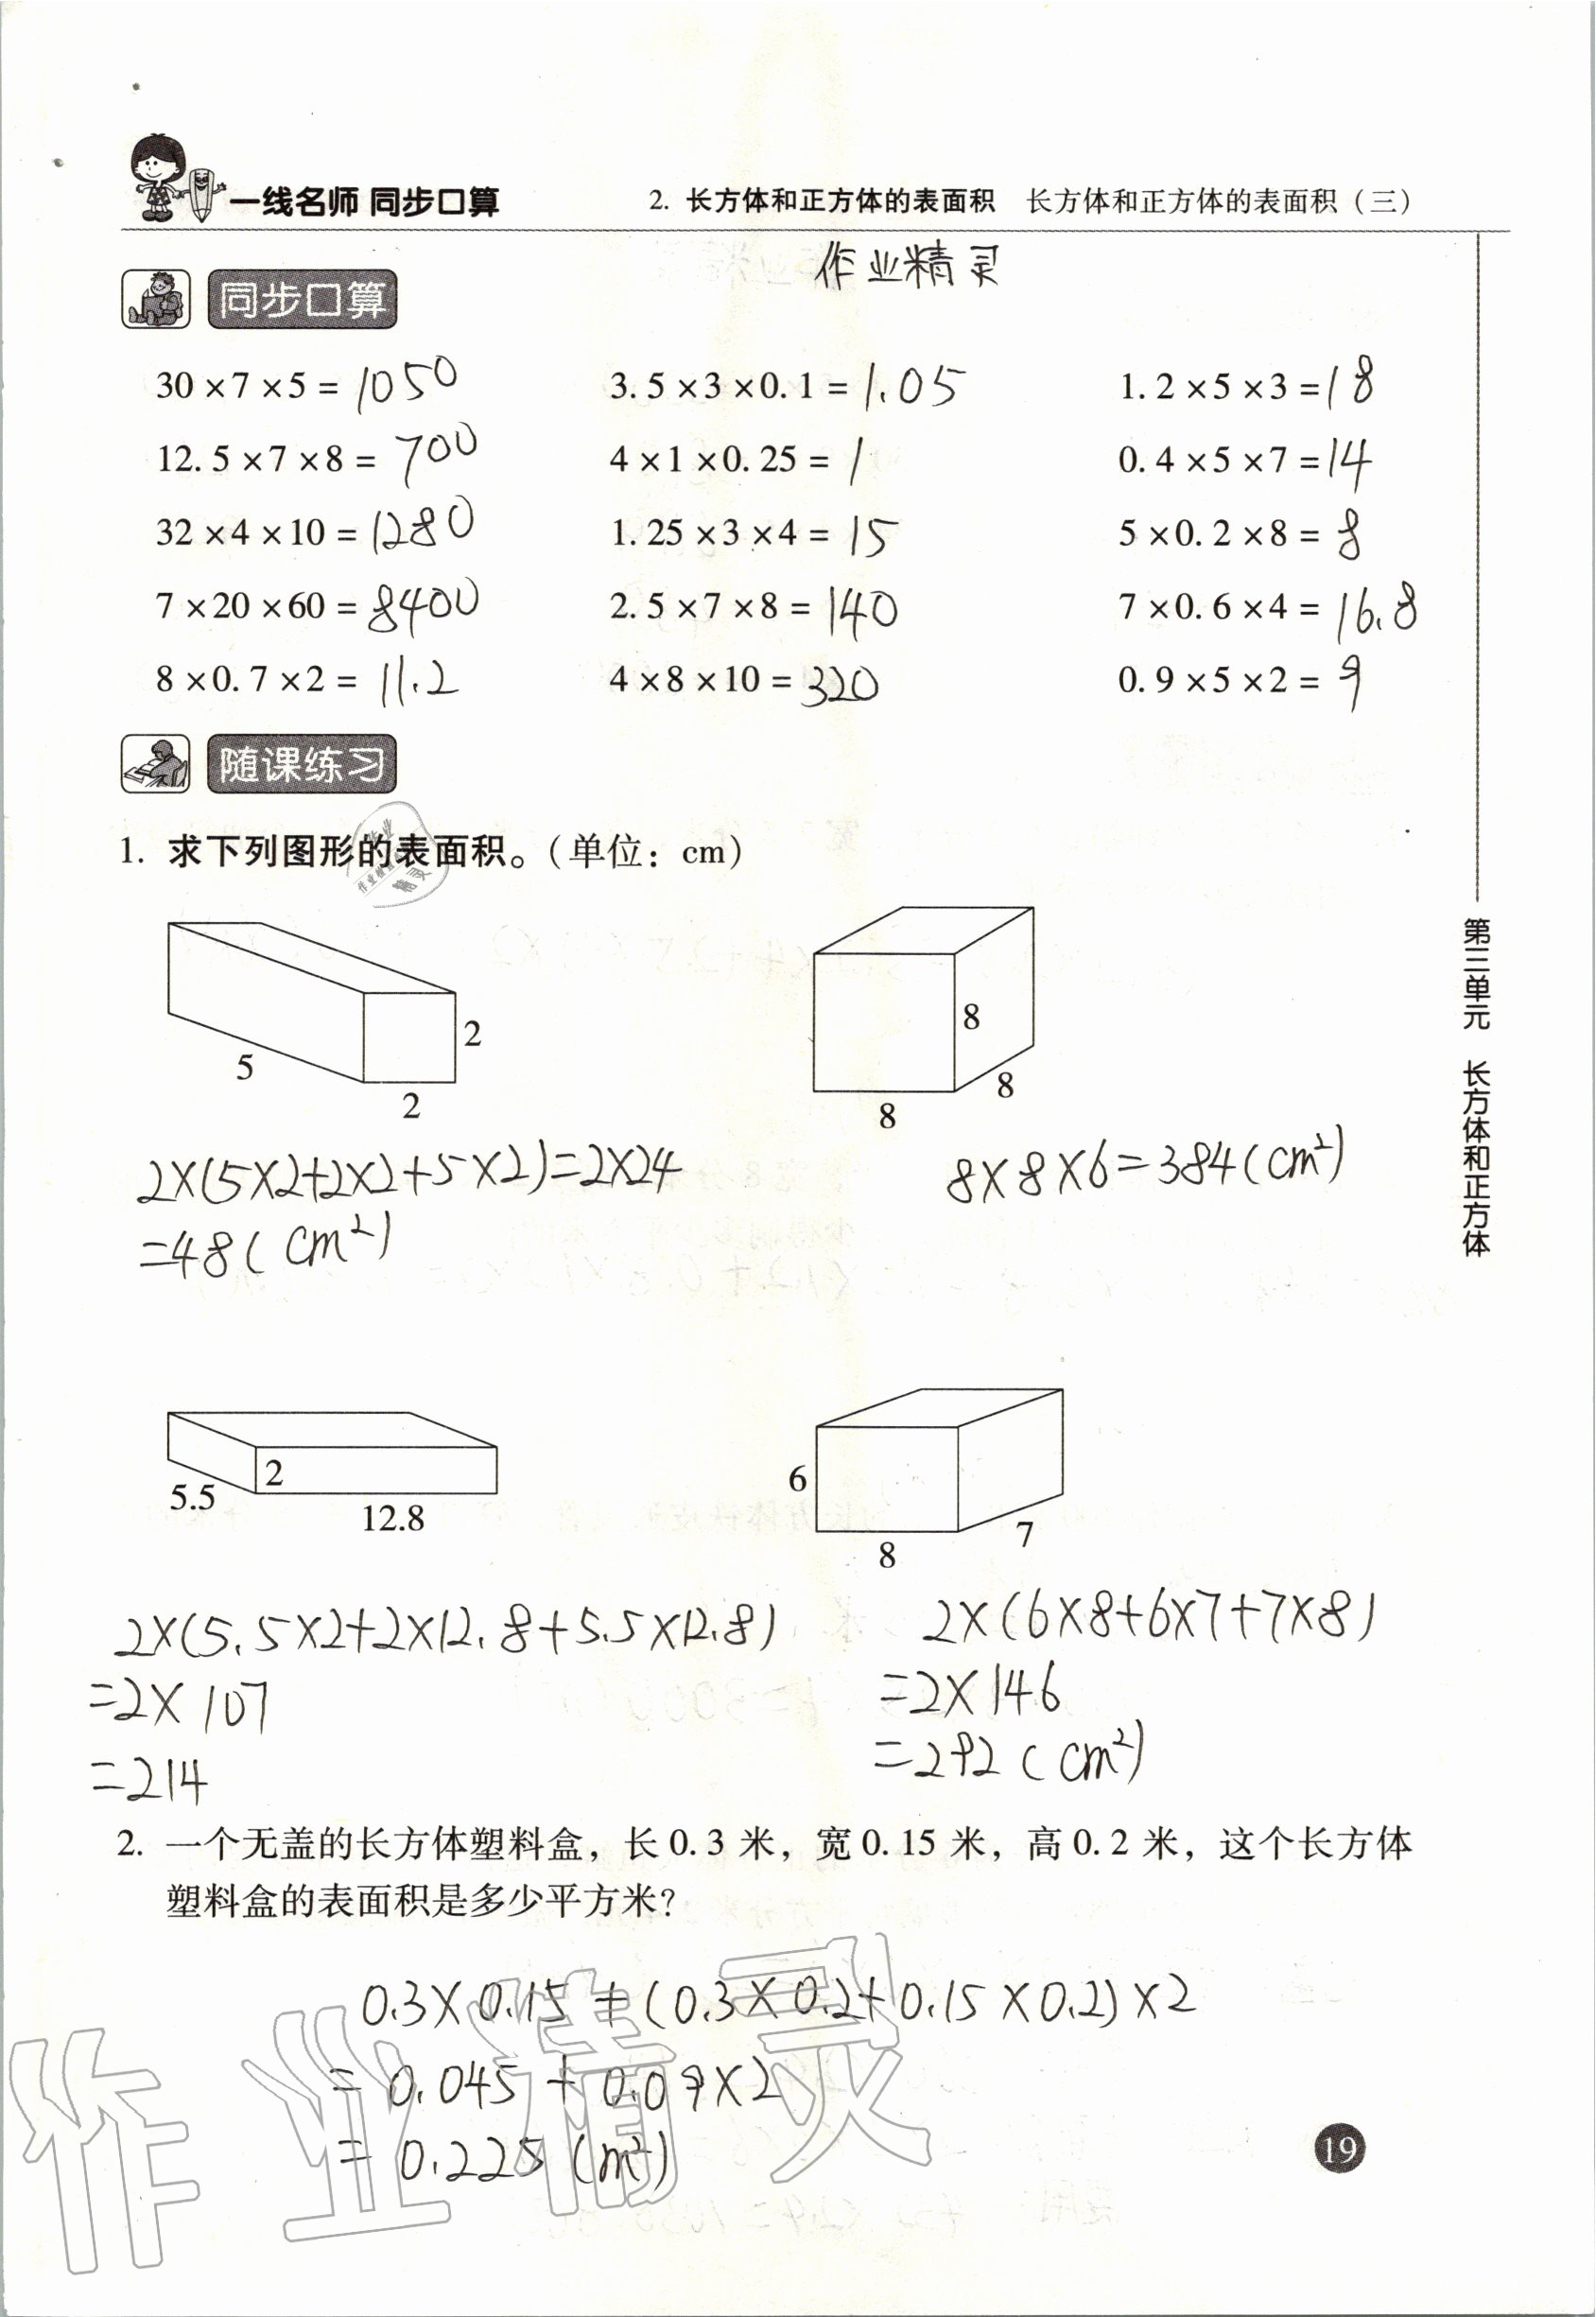 一线名师 同步口算
2. 长方体和正方体的表面积 长方体和正方体的表面积（三）
作业精灵
同步口算
30×7×5=1050 3.5×3×0.1=1.05 1.2×5×3=18
12.5×7×8=700 4×1×0.25=1 0.4×5×7=14
32×4×10=1280 1.25×3×4=15 5×0.2×8=8
7×20×60=8400 2.5×7×8=140 7×0.6×4=16.8
8×0.7×2=11.2 4×8×10=320 0.9×5×2=9
随课练习
1. 求下列图形的表面积。（单位：cm）
5 2 2
8 8 8
2×(5×2+2×2+5×2)=2×24
=48(cm²)
8×8×6=384(cm²)
5.5 2 12.8
6 8 7
2×(5.5×2+2×12.8+5.5×12.8)
=2×107
=214
2×(6×8+6×7+7×8)
=2×146
=292(cm²)
2. 一个无盖的长方体塑料盒，长0.3米，宽0.15米，高0.2米，这个长方体
塑料盒的表面积是多少平方米？
0.3×0.15+(0.3×0.2+0.15×0.2)×2
=0.045+0.09×2
=0.225(m²)
作业精灵
第三单元 长方体和正方体
19